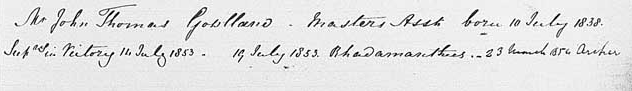 Mr John Thomas Gowlland. Masters Asst born 10 July 1838.
Supd in Victory 14 July 1853 - 19 July 1853. Rhadamanthus. - 23 March 1854 Archer